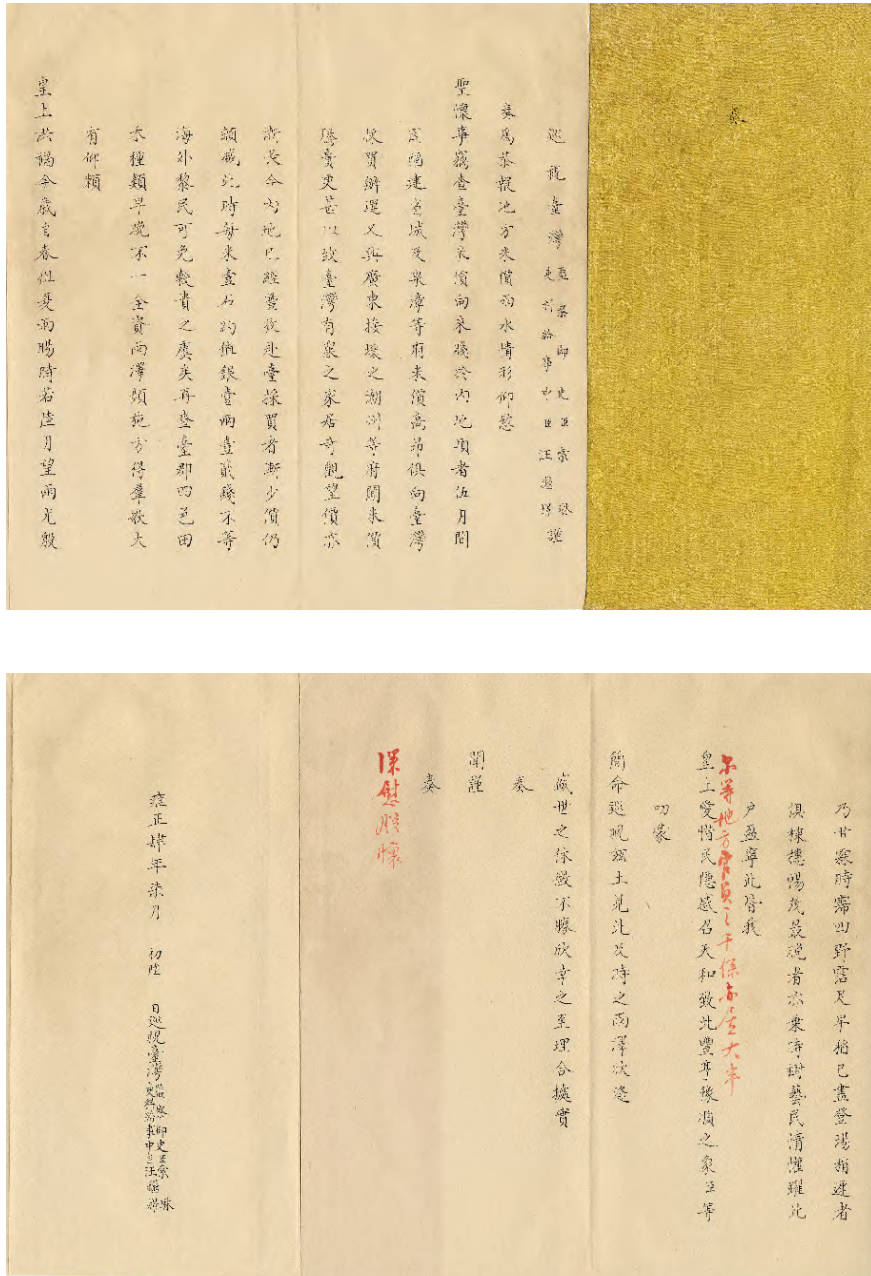 奏
巡視臺灣監察御史臣索琳
吏科給事中臣汪繼璟謹
奏為恭報地方米價雨水情形仰慰
聖懷事竊查臺灣米價向來賤於內地頃者伍月間
因福建省城及泉漳等府米價高昂俱向臺灣
採買辦運又與廣東接壤之潮州等府聞米價
騰貴更甚以致臺灣有粟之家居奇觀望價亦
漸長今內地已經豐收赴臺採買者漸少價仍
頓減此時每米壹石約價銀壹兩壹貳錢不等
海外黎民可免穀貴之虞矣再查臺郡四邑田
禾種類早晚不一全資雨澤頻施方得羣歌大
有仰賴
皇上洪福今歲自春徂夏雨暘時若陸月望雨尤殷
乃甘霖時霈四野霑足早稻已盡登場稍遲者
俱棟穗暢茂最晚者亦乘時樹藝民情懽躍比
户盈寧此皆我
尔等地方官員之干係亦居大半
皇上愛惜民隱感召天和致此豐亨豫順之象臣等
叨蒙
簡命巡視茲土見此及時之雨澤欣逢
盛世之休徵不勝欣幸之至理合據實
奏
聞謹
奏
深慰朕懷
雍正肆年柒月初陸日巡視臺灣監察御史臣索琳
吏科給事中臣汪繼璟